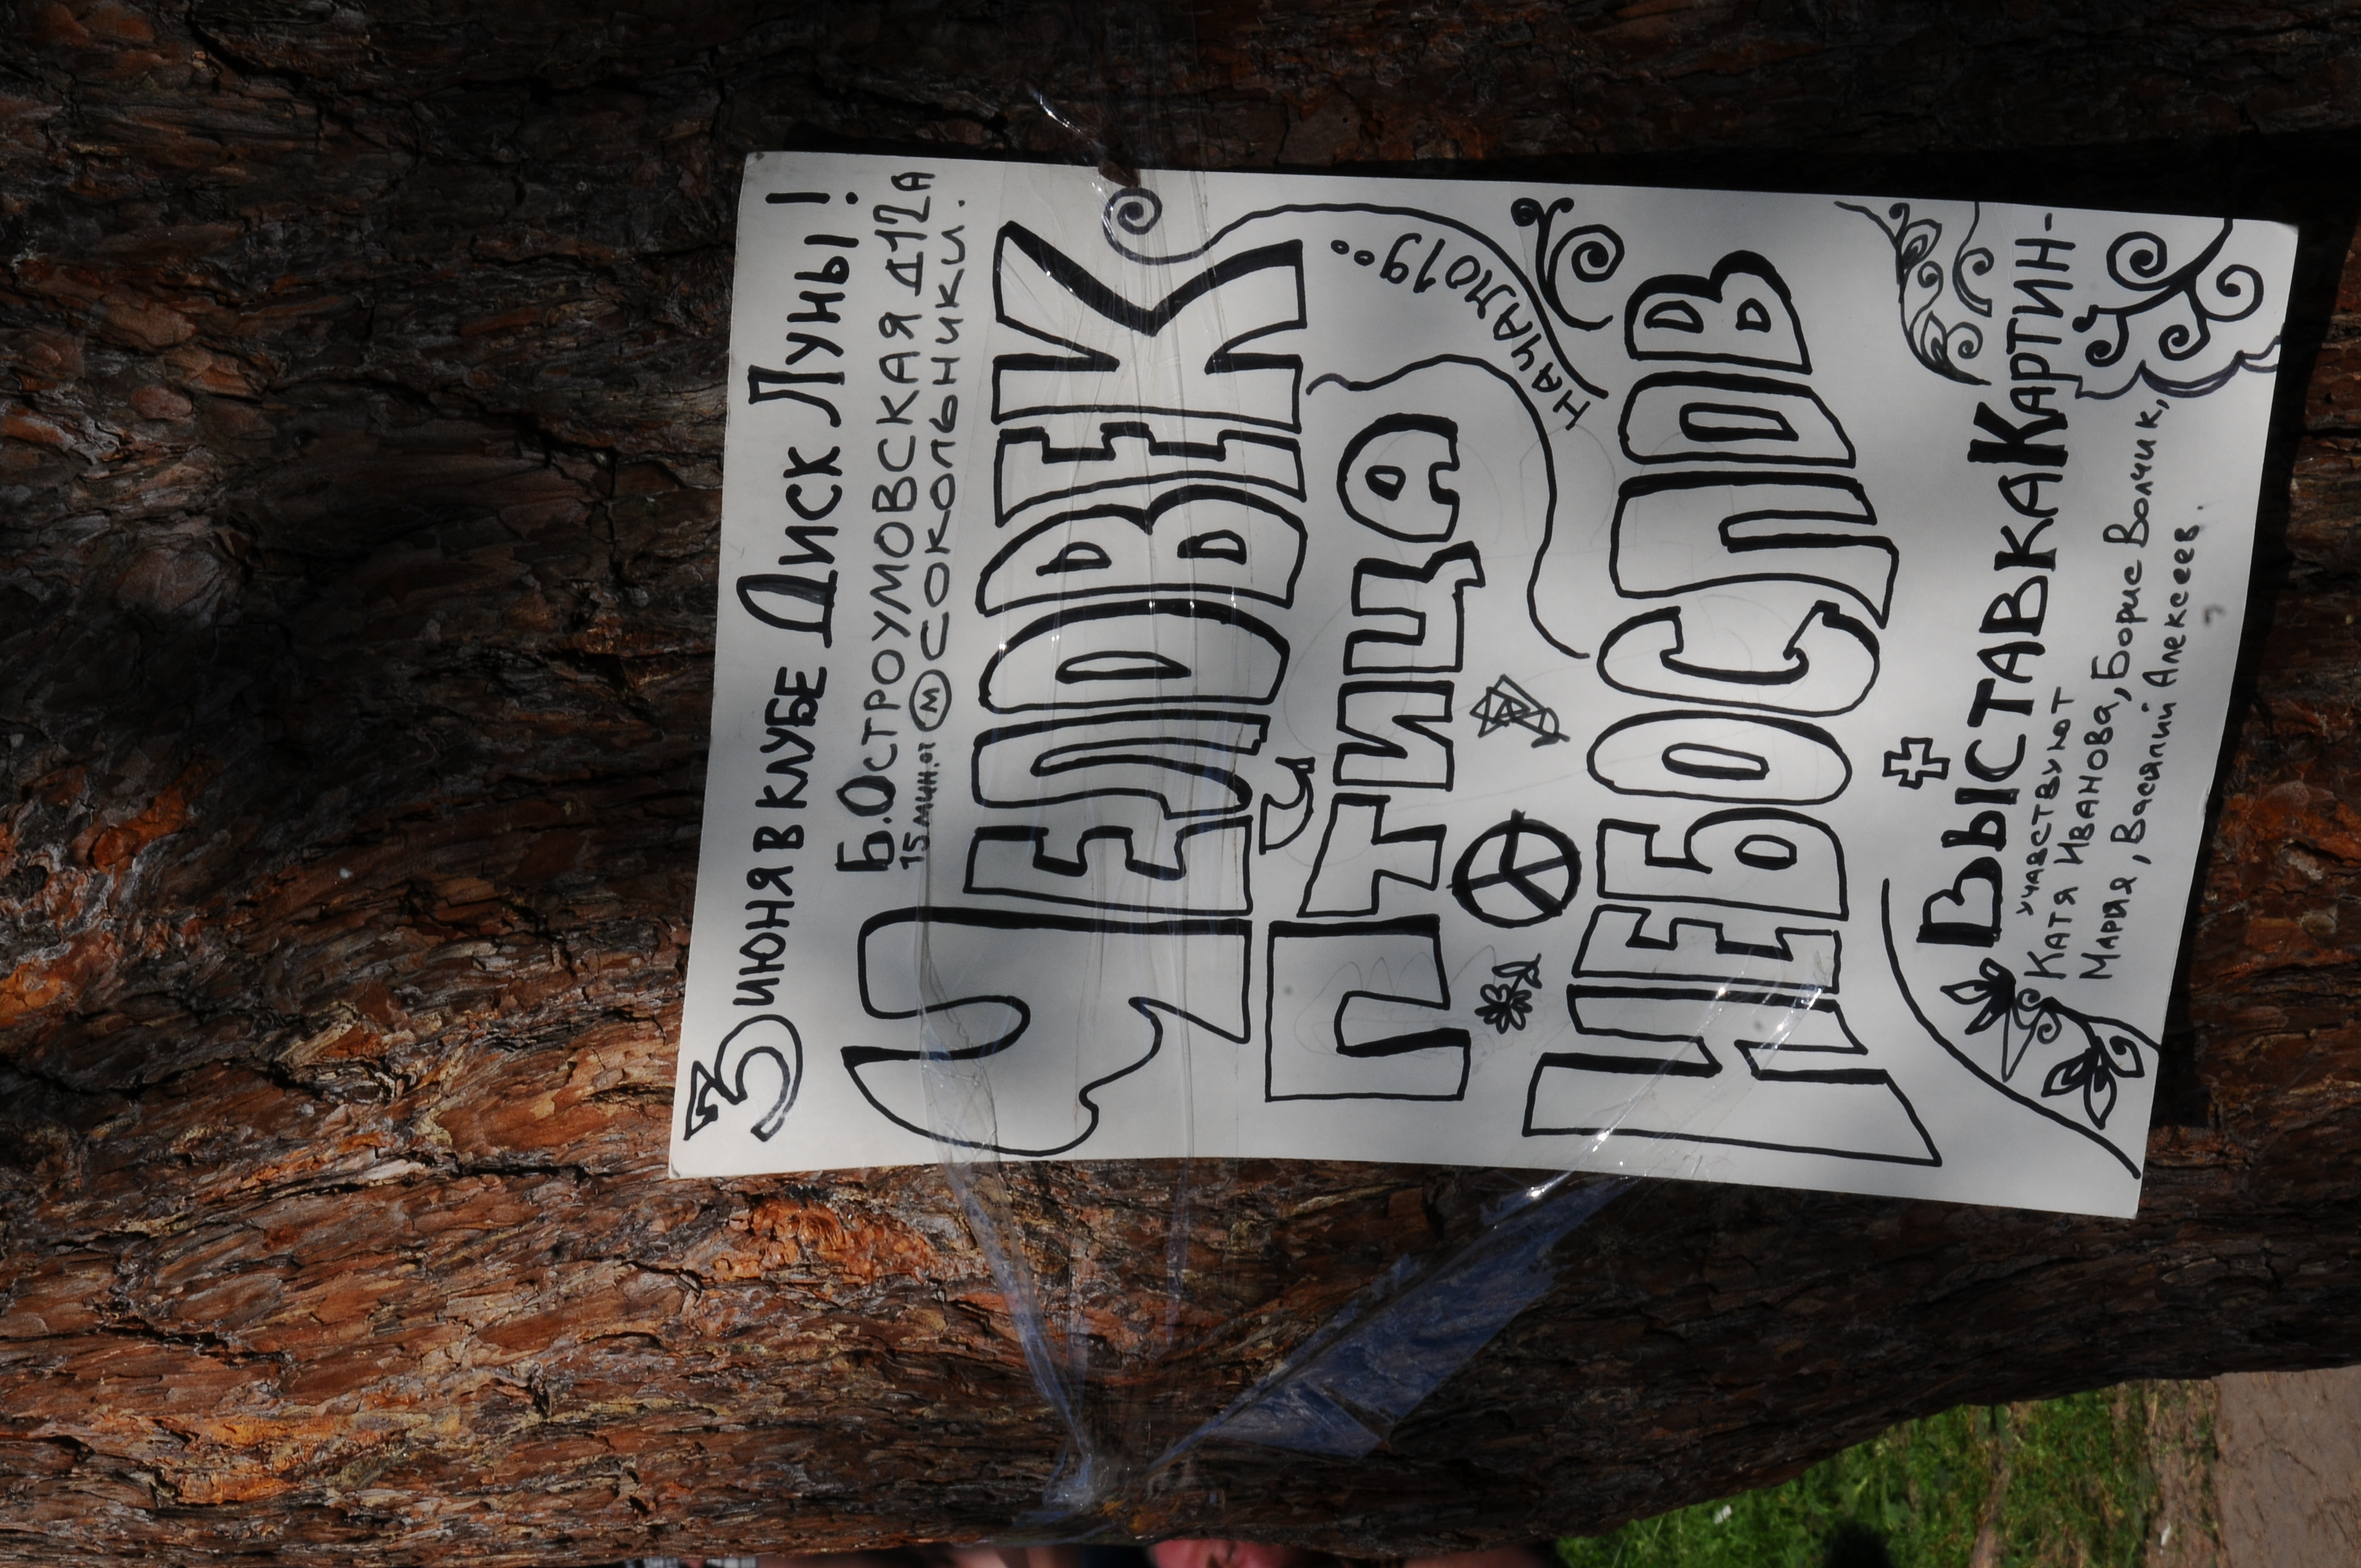 3 июня в клубе Диск Луны!
Б.Остроумовская д12а
15 мин.от м Сокольники.
ЧЕЛОВЕК
и
ПТИЦА
НАЧАЛО 19°°
НЕБОСЛОВ
+
ВЫСТАВКА КАРТИН-
учавствуют
Катя Иванова, Борис Волчик,
Мария, Василий Алексеев.